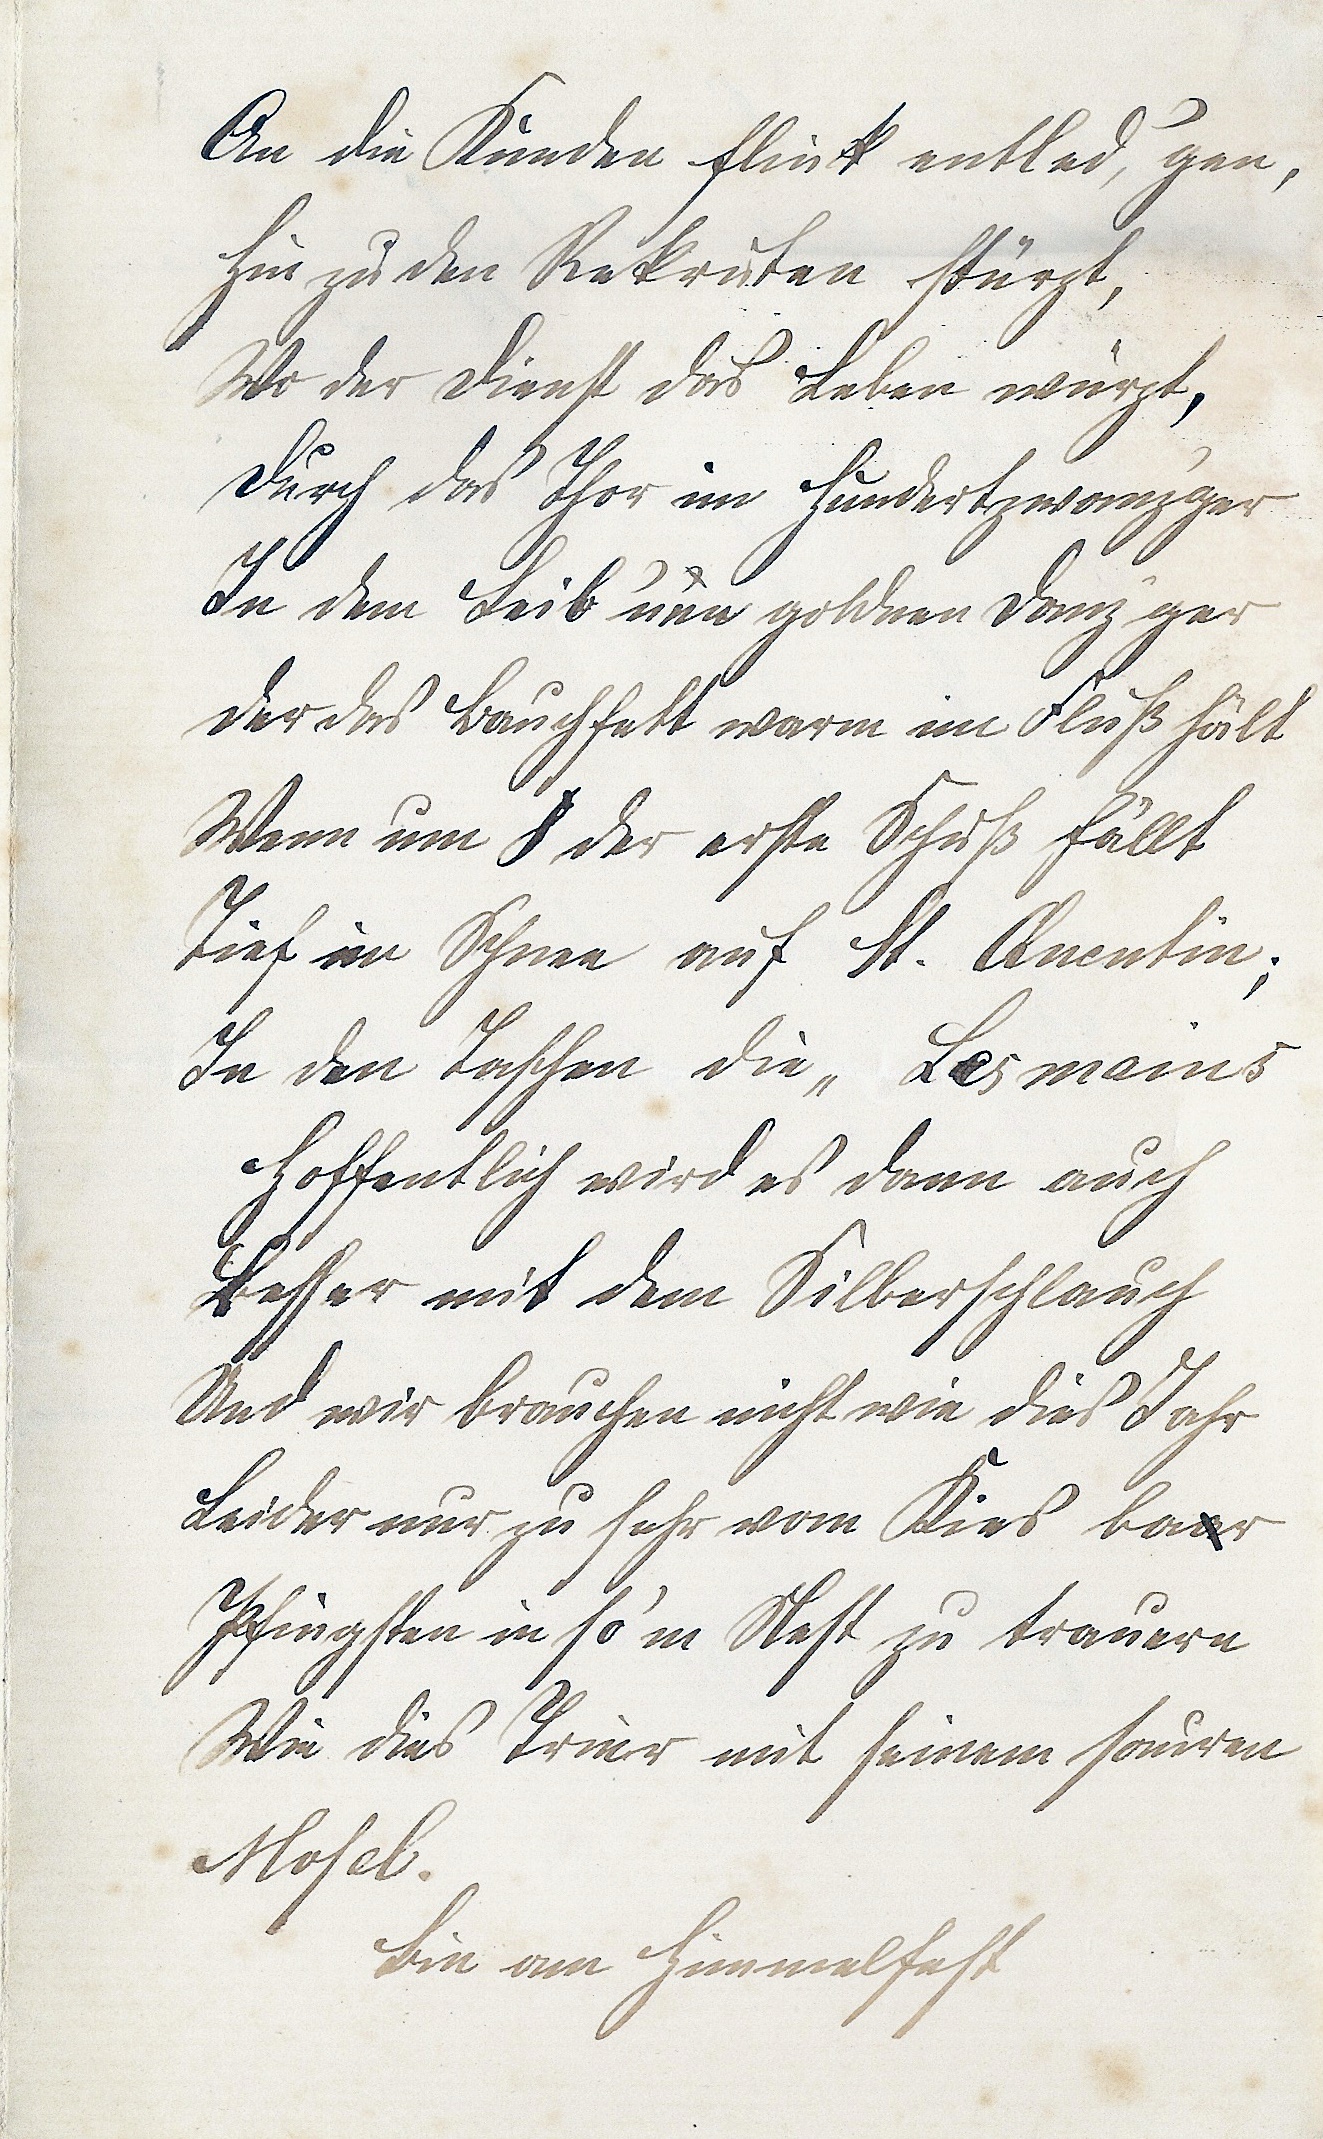 An die Kunden flink entled'gen,
Hin zu den Rekruten stürzt,
Wo der Dienst das Leben würzt,
Durch das Thor im Hundertzwanz'ger
In dem Leib 'nen goldnen Danz'ger
Der das Bauchfett warm im Fluß hält
Wenn um 8 der erste Schuß fällt
Tief im Schnee auf St. Quentin;
In den Taschen die „ Les mains
Hoffentlich wird es dann auch
Besser mit dem Silberschlauch
Und wir brauchen nicht wie dies Jahr
Leider nur zu sehr vom Kies bar
Pfingsten in so'm Nest zu trauern
Wie dies Trier mit seinem sauren
Mosel.
Bin am Himmelfest